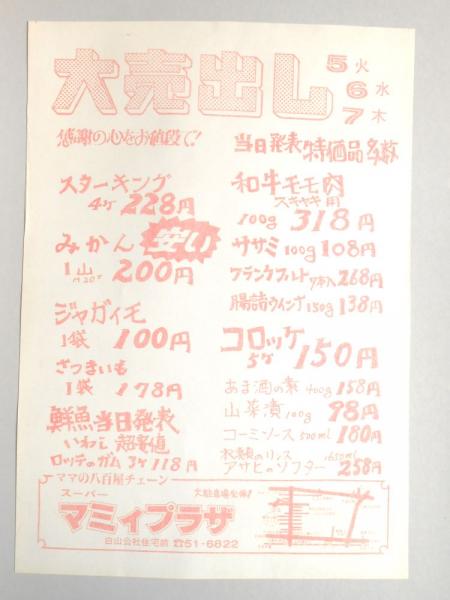 大売出し
5火
6水
7木
感謝の心をお値段で!
スターキング
4ケ 228円
みかん 安い
1山 200円
ジャガイモ
1袋 100円
さつまいも
1袋 178円
鮮魚当日発表
いわし 超安値
ロッテのガム 3ケ 118円
当日発表 特価品多数
和牛モモ肉
スキヤキ用
100g 318円
ササミ 100g 108円
フランクフルト 7本入 268円
腸詰ウインナ 150g 138円
コロッケ
5ケ 150円
あま酒の素 400g 158円
山菜漬 100g 98円
コーミソース 500ml 180円
アサヒのソフター 258円
ママの八百屋チェーン
スーパー
マミィプラザ
白山公社住宅前 ☎51-6822
大駐車場完備!